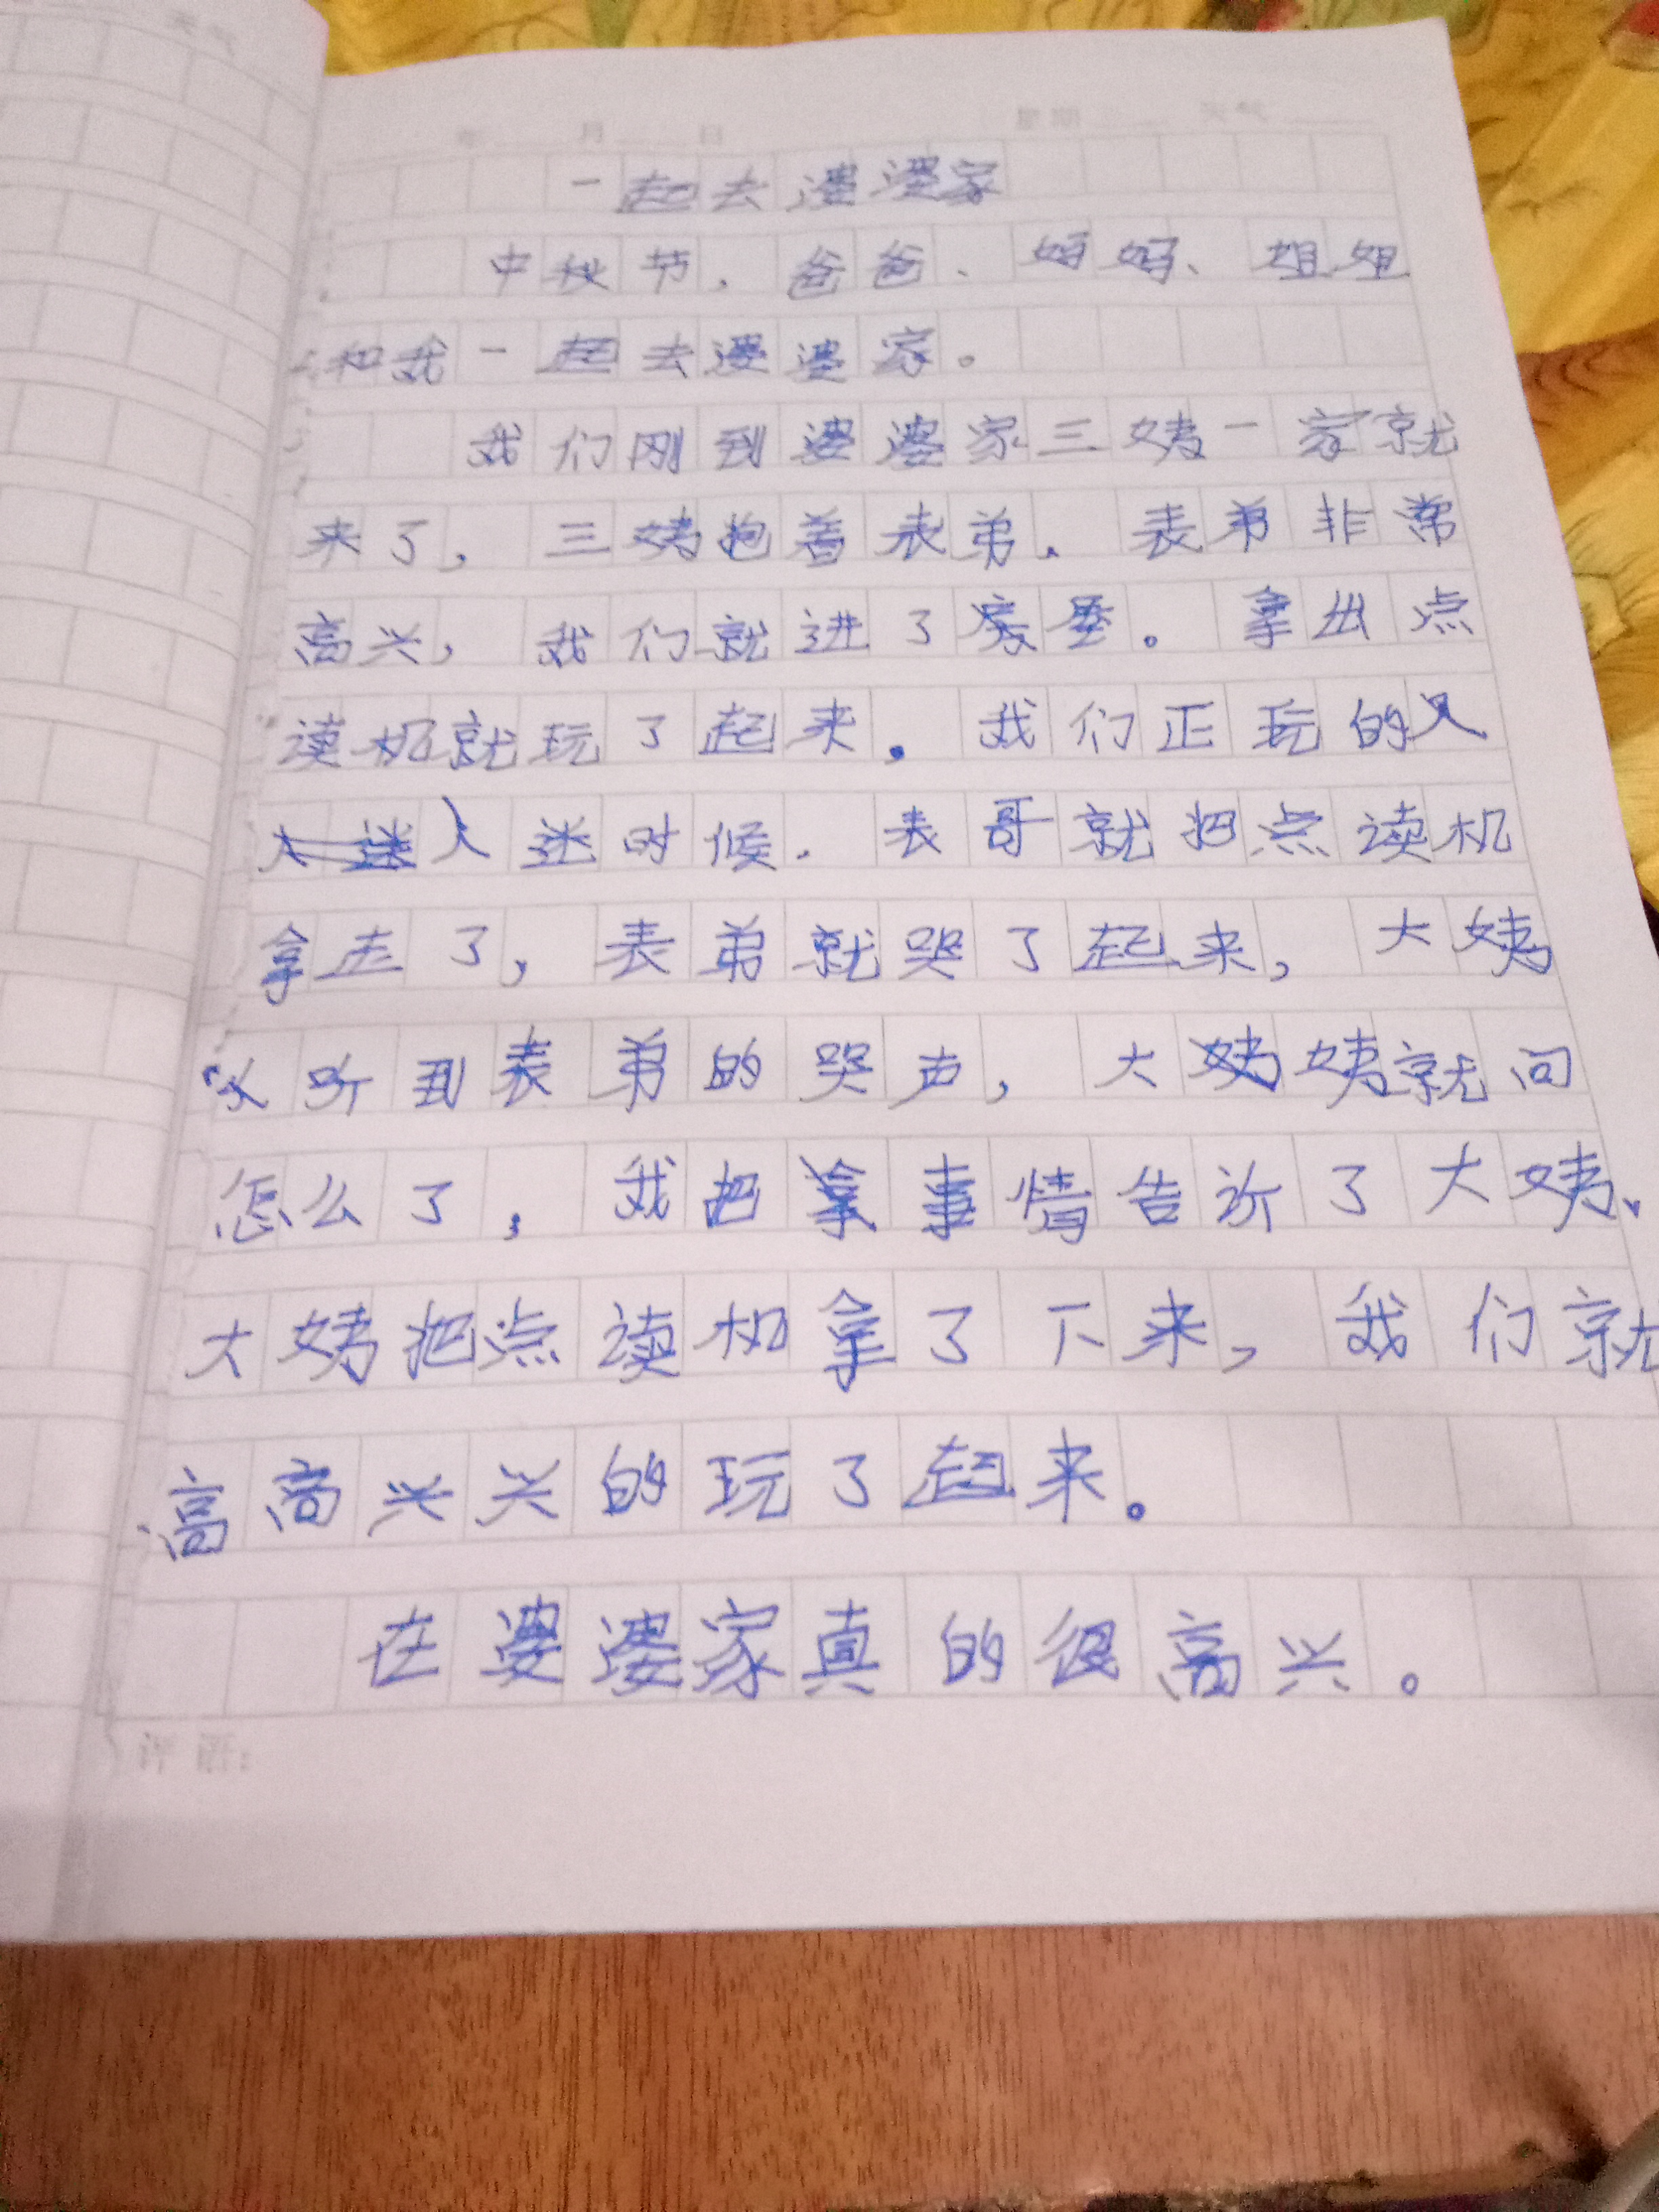 年 月 日 星期 天气
一起去婆婆家
中秋节,爸爸、妈妈、姐姐
和我一起去婆婆家。
我们刚到婆婆家三姨一家就
来了,三姨抱着表弟.表弟非常
高兴,我们就进了房屋。拿出点
读机就玩了起来。我们正玩的
入迷时候.表哥就把点读机
拿走了,表弟就哭了起来,大姨
听到表弟的哭声,大姨就问
怎么了,我把事情告诉了大姨、
大姨把点读机拿了下来,我们就
高高兴兴的玩了起来。
在婆婆家真的很高兴。
评语: